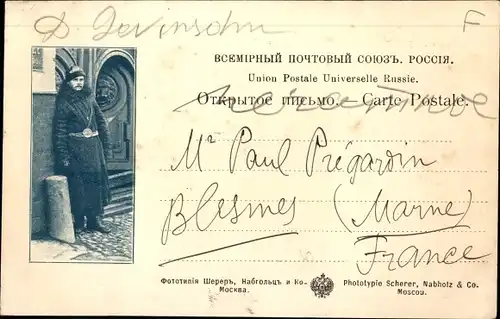 F
ВСЕМІРНЫЙ ПОЧТОВЫЙ СОЮЗЪ. РОССІЯ.
Union Postale Universelle Russie.
Открытое письмо. — Carte Postale.
Mr Paul Prégardin
Blesmes (Marne)
France
Фототипія Шереръ, Набгольцъ и Ко. Phototypie Scherer, Nabholz & Co.
Москва. Moscou.